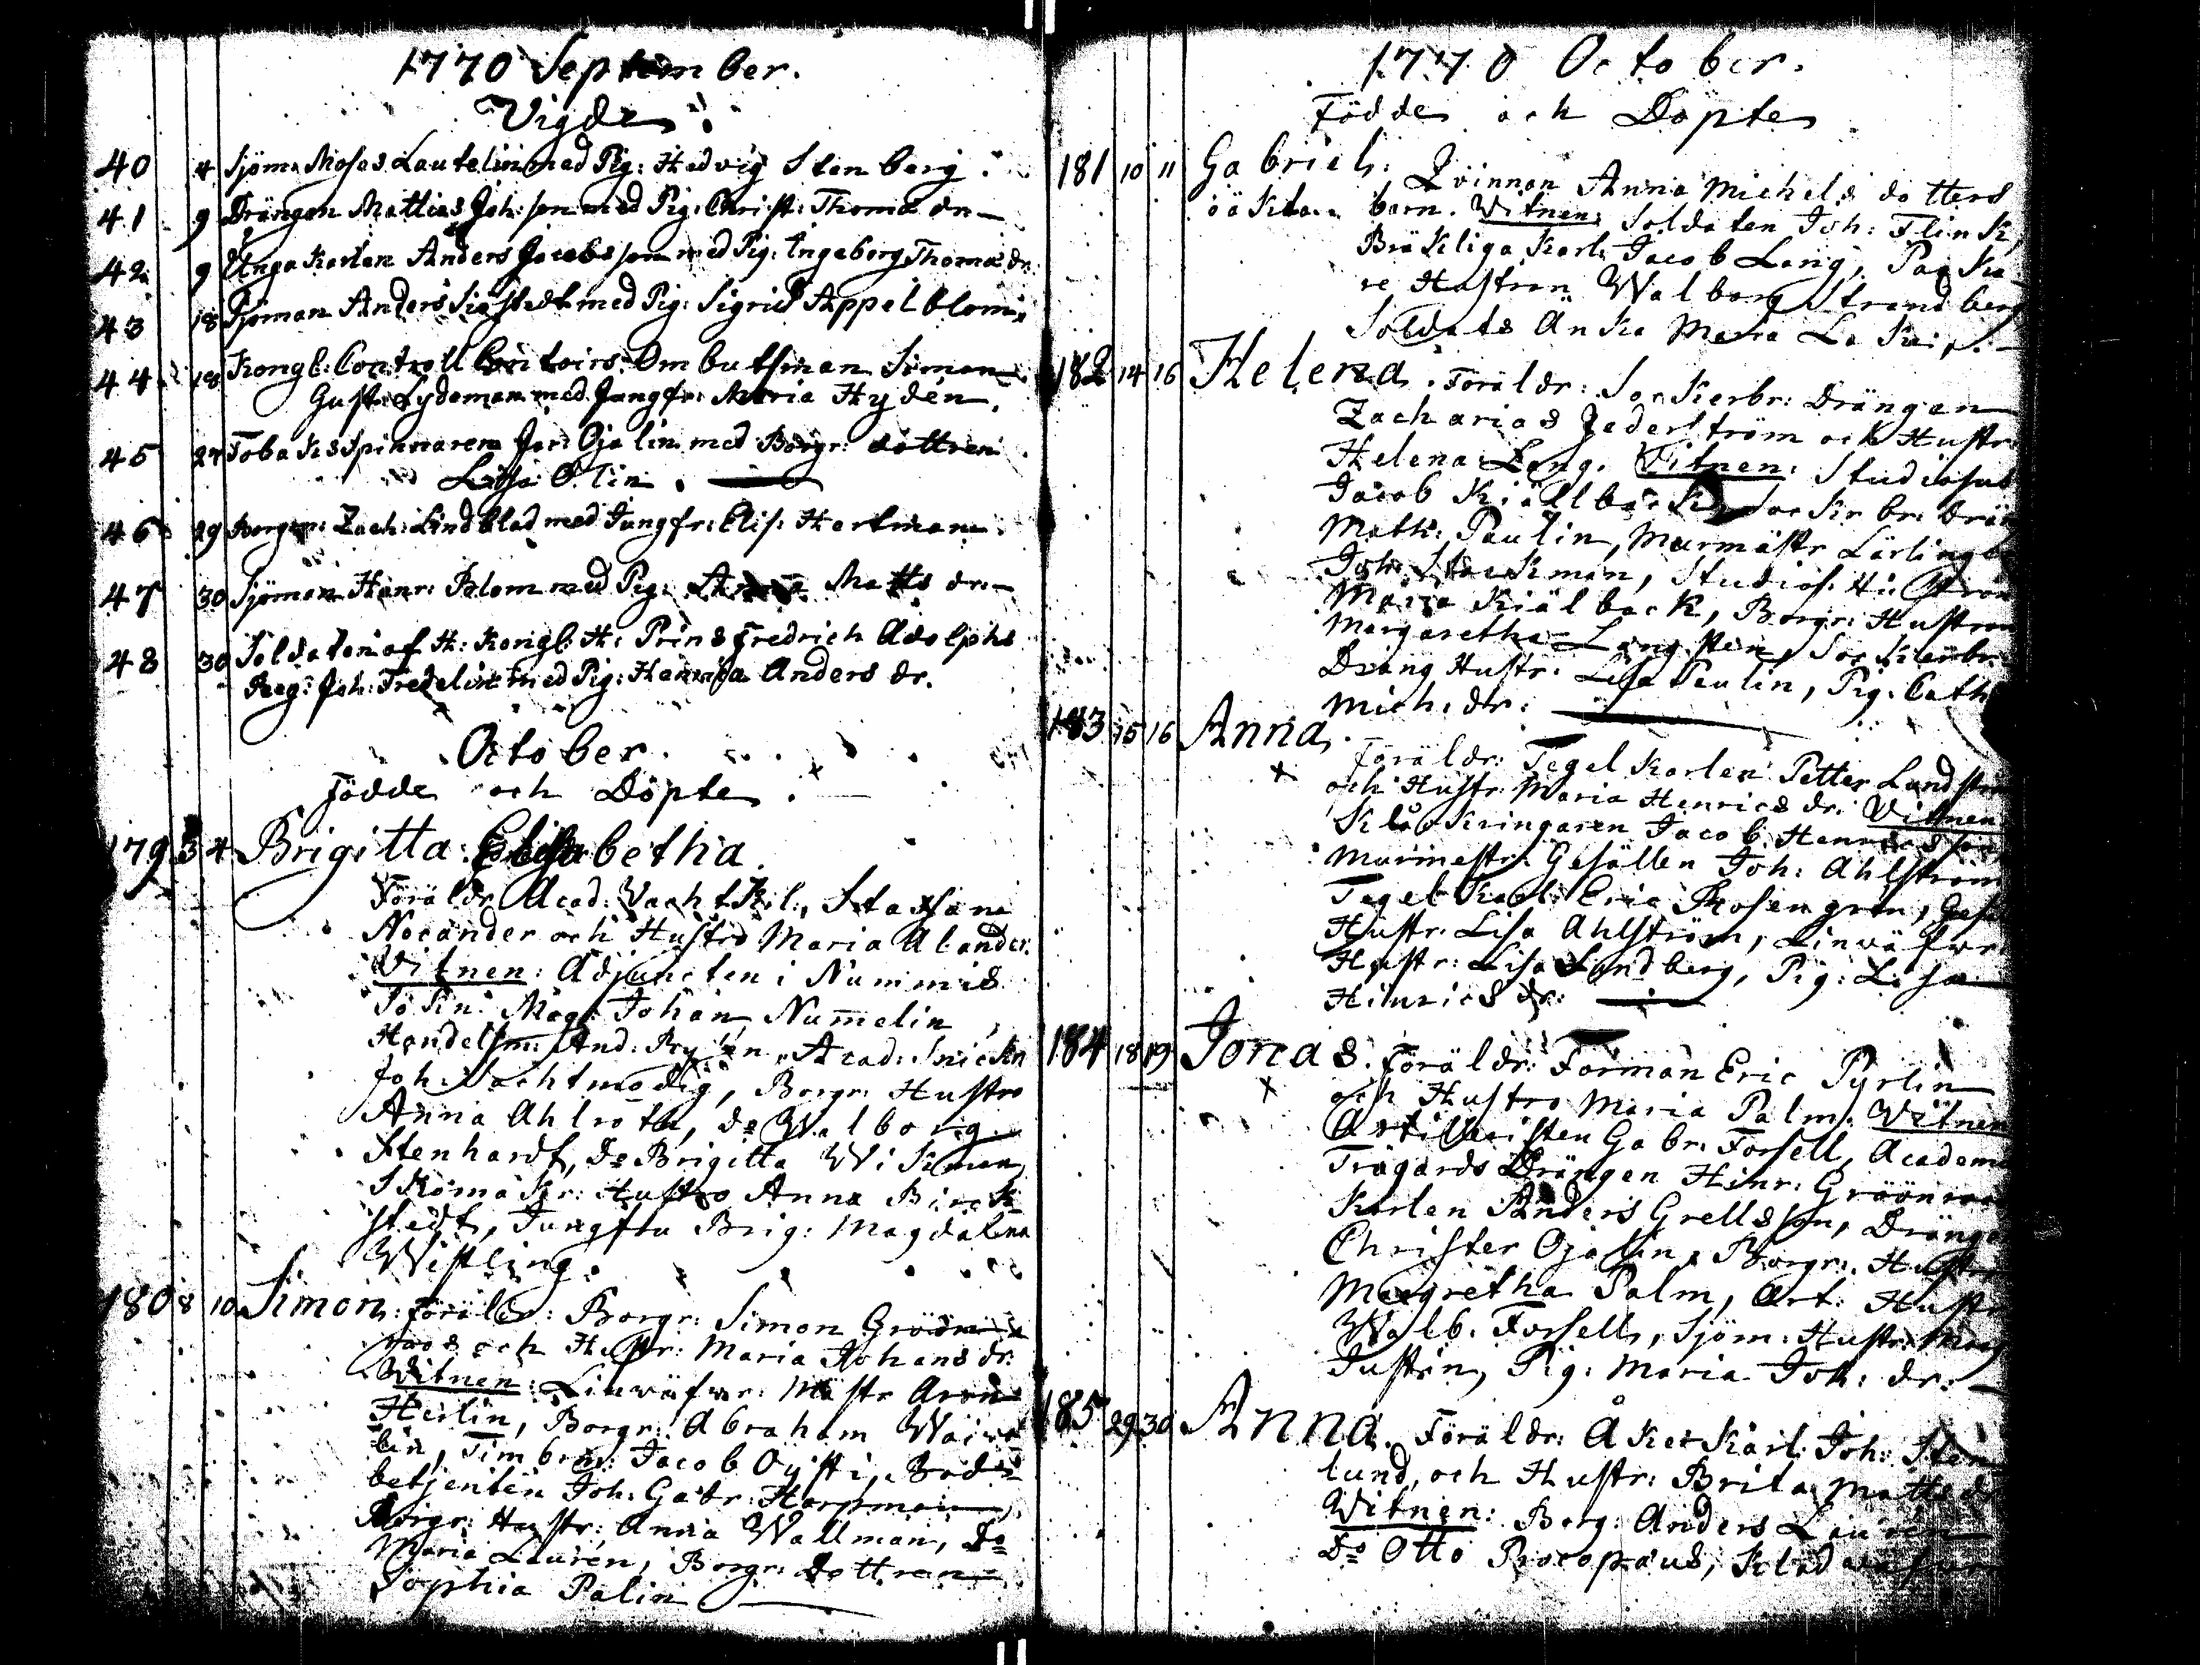 1770 September.
Vigde
40 4 Sjöm: Moses Lautelin med Pig: Hedvig Stenberg.
41 9 Drängen Mattias Joh: son med Pig: Christ: Thomæ dr
42 9 Unga Karlen Anders Jacobs son med Pig: Ingeborg Thomæ dr
43 18 Sjöman Anders Siöstedt med Pig: Sigrid Appelblom:
44 18 Kongl: Controll Contoirs Ombutsman Simon
Gust: Lydeman med Jungfr: Maria Hydén.
45 27 Tobaks Spinnaren Joh: Ojalin med Borgr: dottren
Lisa Olin.
46 29 Borgr: Zach: Lindblad med Jungfr: Elis: Hartman.
47 30 Sjöman Henr: Blom med Pig: Matts dr
48 30 Soldaten af H: Kongl: H: Prins Fredrich Adolphs
Reg: Joh: Fredelin med Pig: Henrica Anders dr.
October.
Födde och Döpte.
179 3 4 Brigitta Elisabetha
Föräldr Acad: Vachtk:l: Staffan
Nocander och Hustro Maria Alander.
Vitnen: Adjuncten i Nummis
Sokn: Mag: Johan Numelin,
Handelsm: And: Rydén, Acad: Snickn
Joh: Wachtmodig, Borgr: Hustro
Anna Ahlroth, do Walborg
Stenhardt, do Brigitta Wikman
Skomakr: Hustro Anna Birck
stedt, Jungfru Brig: Magdalena
Wistling.
180 8 10 Simon: Föräldr: Borgr: Simon Gröön
roos och Hustr: Maria Johans dr:
Witnen: Linväfvr: Mästr Aron
Herlin, Borgr: Abraham Wäiva
lin, Timbrm: Jacob Öysti, Bode
betjenten Joh: Gabr: Harpman,
Borgr: Hustr: Anna Wallman, Do
Maria Laurén, Borgr: dottren
Sophia Palin
1770 October.
Födde och Döpte
181 10 11 Gabriel: Qvinnan Anna Michels dotters
oäkta barn. Witnen: Soldaten Joh: Flink,
Bräkliga Karl: Jacob Lang, Packa
re Hustrun Walborg Strandberg
Soldats Änka Maria
182 14 16 Helena. Föräldr: Sockerbr: Drängen
Zacharias Zederström och Hustr:
Helena Lang. Vitnen: Studiosus
Jacob Kiällback, Sockr br: drän
Math: Paulin, Murmästr Lärling
Joh: Stackman, Studios: Hustron
Maria Kiälback, Borgr: Hustron
Margaretha Langsten, Sockerbr:
Dräng Hustr: Lisa Paulin, Pig: Cath
Mich: dr:
183 15 16 Anna.
Föräldr: Tegel Karlen Petter Landstr
och Hustr: Maria Henrics dr: Vittnen
Klåckringaren Jacob Henrics son
Murmestr: Gesällen Joh: Ahlström
Tegel Karl: Eric Rosengren, Gesä
Hustr: Lisa Ahlström, Linväfvr
Hustr: Lisa Landberg, Pig: Lisa
Hinrics dr:
184 18 19 Jonas. Föräldr: Forman Eric Pyrlin
och Hustro Maria Palm. Witnen
Artilleristen Gabr: Forsell, Academ
Trägårds Drängen Hinr: Gröönroo
Karlen Anders Grellsson, Dränge
Christer Ojalin, Borgr: Hustr
Margretha Palm, Art: Hustr
Walb: Forsell, Sjöm: Hustr: Marg
Justén, Pig: Maria Joh: dr:
185 29 30 Anna. Föräldr: Åker Karl: Joh: Sten
lund, och Hustr: Brita Matts dr
Witnen: Borg: Anders Laurén
Do Otto Procopæus,